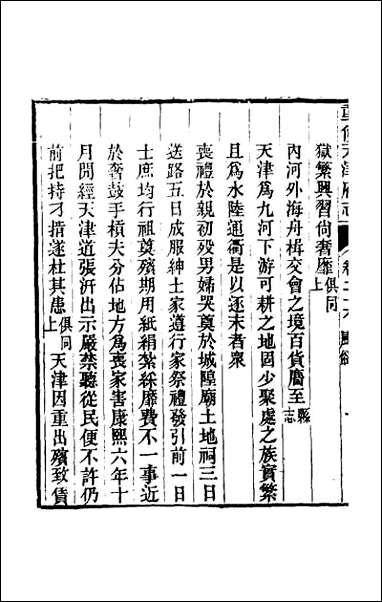 重修天津府志 卷二十六 風俗 一
獄繁興習尚奢靡俱同上
內河外海舟楫交會之境百貨麕至縣志
天津爲九河下游可耕之地固少聚處之族實繁
且爲水陸通衢是以逐末者衆
喪禮於親初歿男婦哭奠於城隍廟土地祠三日
送路五日成服紳士家遵行家祭禮發引前一日
士庶均行祖奠殯期用紙絹紮綵靡費不一事近
於奢鼓手槓夫分佔地方爲喪家害康熙六年十
月間經天津道張汧出示嚴禁聽從民便不許仍
前把持刁掯遂杜其患俱同上 天津因重出殯致賃